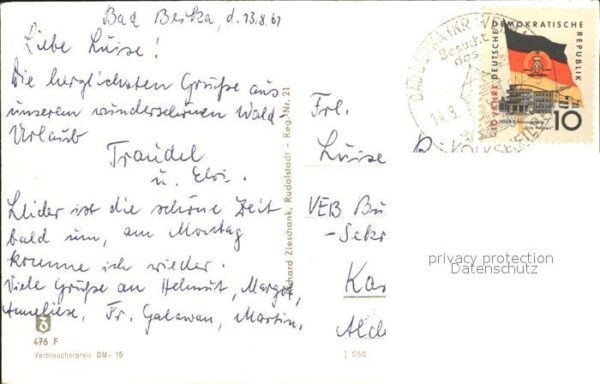 Bad Berka, d. 13.8.61
Liebe Luise!
Die herzlichsten Grüße aus
unserem wunderschönen Wald-
Urlaub
Traudel
u. Elvi.
Leider ist die schöne Zeit
bald um, am Montag
komme ich wieder.
Viele Grüße an Helmut, Margot,
Anneliese, Fr. Galawan, Martin.
476 F
Verbraucherpreis DM -15
Richard Zieschank, Rudolstadt - Reg.-Nr. 21
I 050
Frl.
Luise
VEB
-Sekr
Ka
Besucht
das
BAD BERKA (KR
14.8.
10 JAHRE DEUTSCHE DEMOKRATISCHE REPUBLIK
DDR
10
privacy protection
Datenschutz